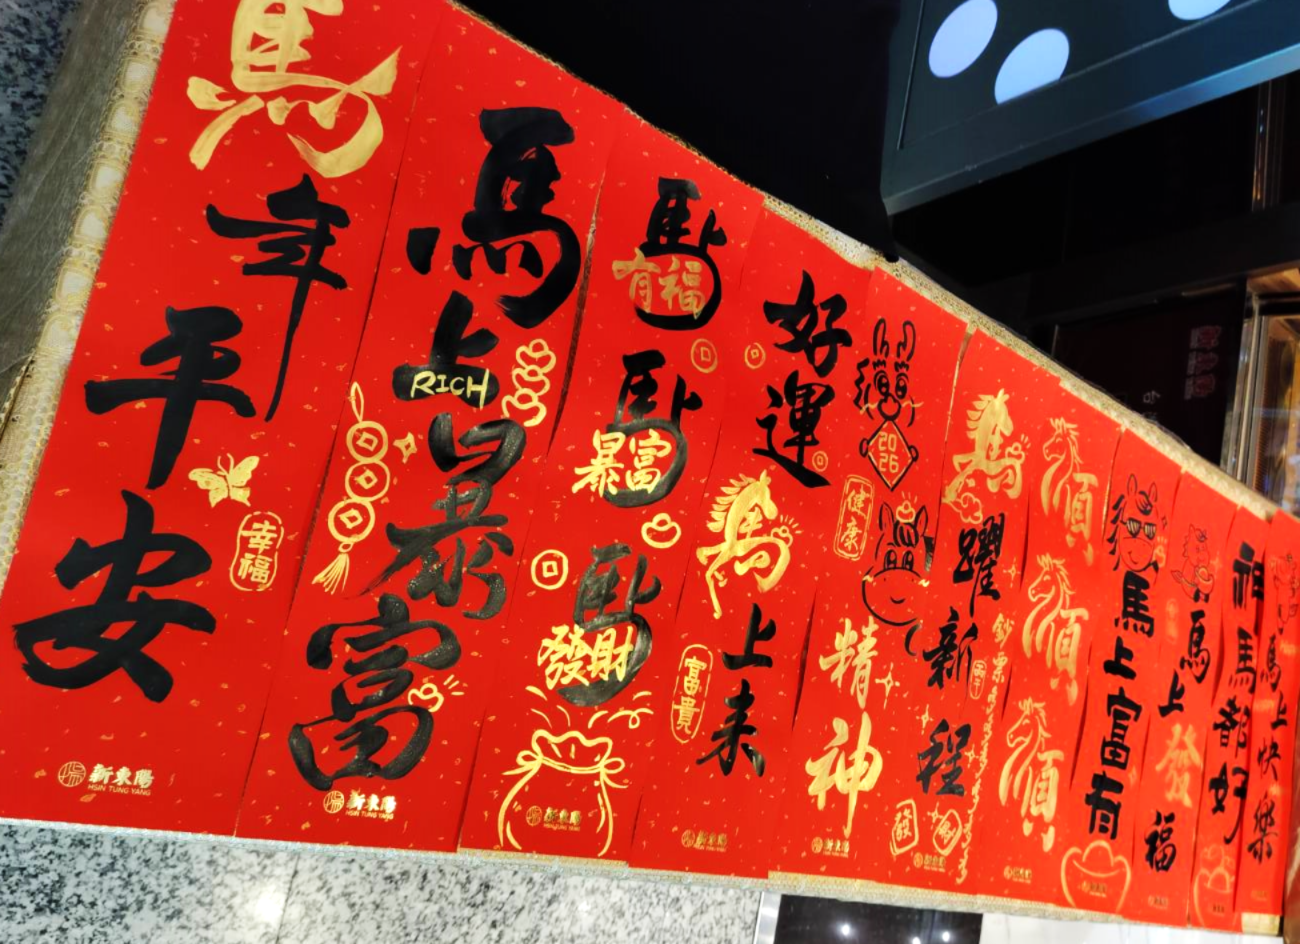 馬年平安
幸福
新東陽
HSIN TUNG YANG
馬上暴富
RICH
新東陽
HSIN TUNG YANG
馬有福
馬暴富
馬發財
新東陽
好運馬上來
富貴
新東陽
2026
健康
精神
新東陽
馬躍新程
鈔票
發
新東陽
順順順
馬上富有
馬上發福
神馬都好
馬上快樂